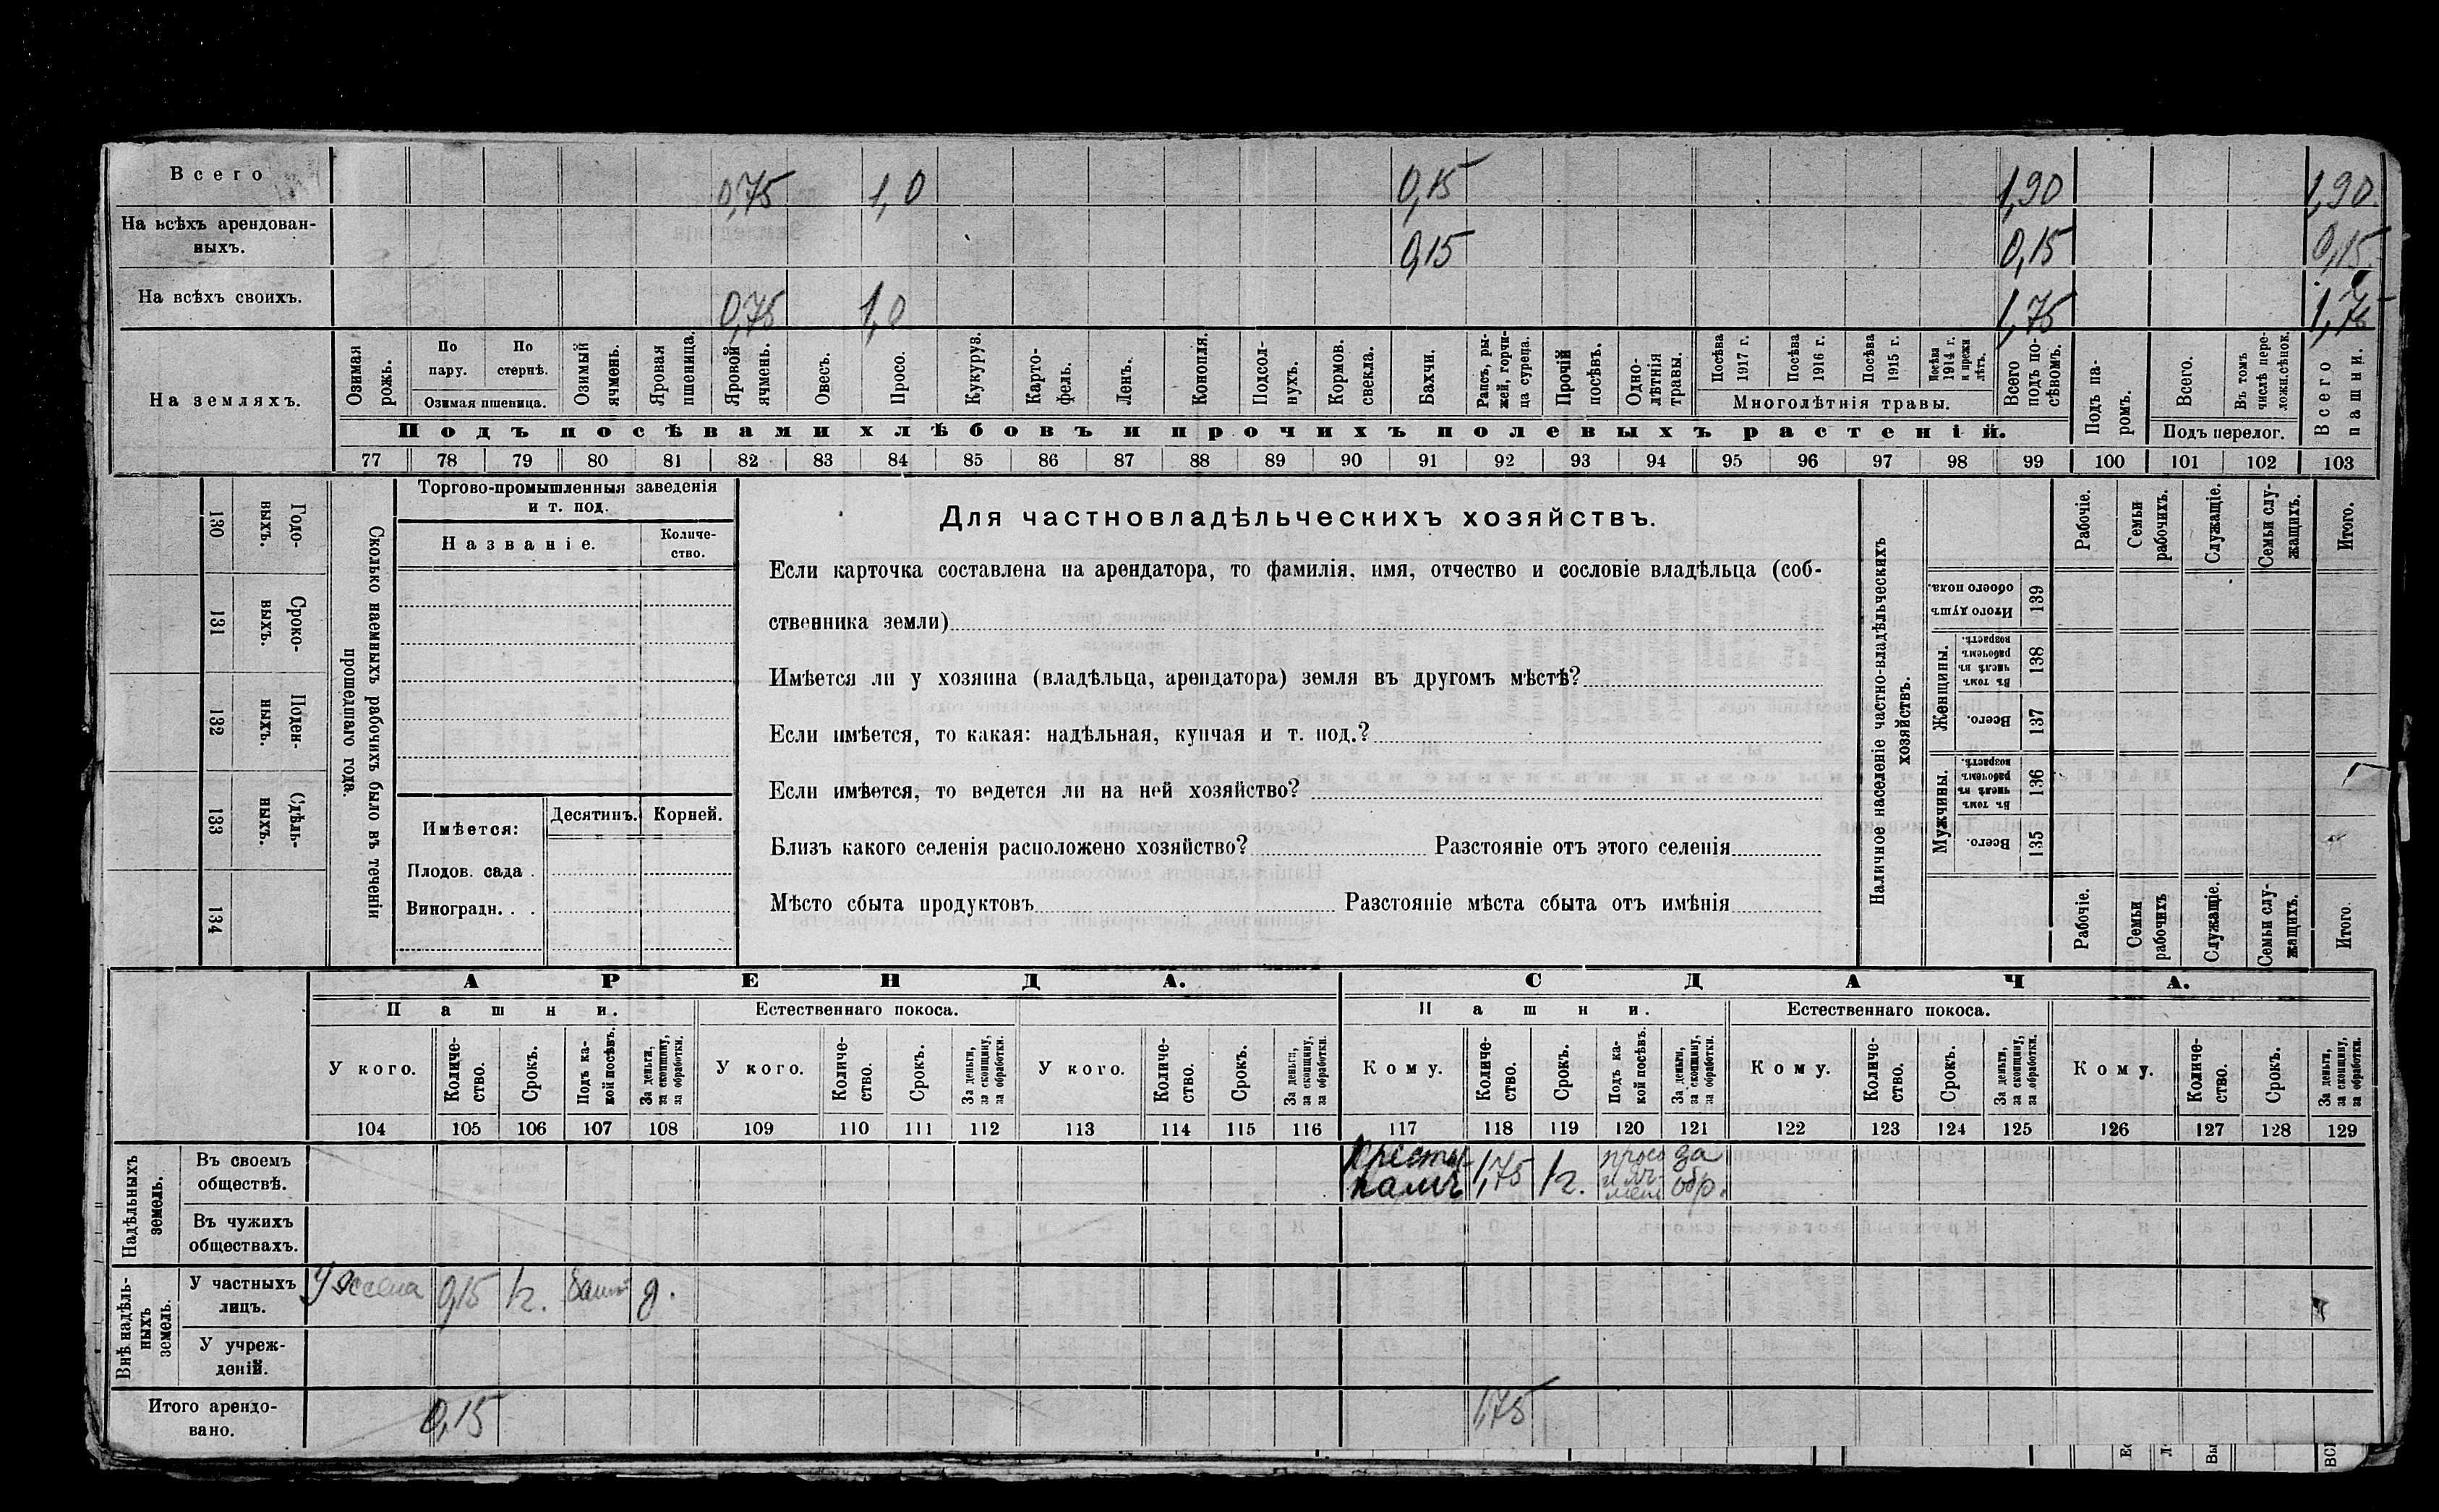 Всего 0,75 1,0 0,15 1,90 1,90
На всѣхъ арендован-
ныхъ. 0,15 0,15 0,15
На всѣхъ своихъ. 0,75 1,0 1,75 1,75
На земляхъ.
Озимая рожь.
По пару.
По стернѣ.
Озимая пшеница.
Озимый ячмень.
Яровая пшеница.
Яровой ячмень.
Овесъ.
Просо.
Кукуруз.
Карто-
фель.
Ленъ.
Конопля.
Подсол-
нухъ.
Кормов.
свекла.
Бахчи.
Рапсъ, ры-
жей, горчи-
ца суреца.
Прочій
посѣвъ.
Одно-
лѣтнія
травы.
Посѣва
1917 г.
Посѣва
1916 г.
Посѣва
1915 г.
Посѣва
1914 г.
и прежн
лѣтъ.
Многолѣтнія травы.
Всего
подъ по-
сѣвомъ.
Подъ па-
ромъ.
Всего.
Въ томъ
числѣ пере-
ложн.сѣнок.
Подъ перелог.
Всего
пашни.
Подъ посѣвами хлѣбовъ и прочихъ полевыхъ растеній.
77 78 79 80 81 82 83 84 85 86 87 88 89 90 91 92 93 94 95 96 97 98 99 100 101 102 103
130
Годо-
выхъ.
131
Сроко-
выхъ.
132
Поден-
ныхъ.
133
Сдѣль-
ныхъ.
134
Сколько наемныхъ рабочихъ было въ теченіи
прошедшаго года.
Торгово-промышленныя заведенія
и т. под.
Названіе.
Количе-
ство.
Имѣется:
Десятинъ.
Корней.
Плодов. сада .
Виноградн. . .
Для частновладѣльческихъ хозяйствъ.
Если карточка составлена на арендатора, то фамилія, имя, отчество и сословіе владѣльца (соб-
ственника земли)
Имѣется ли у хозяина (владѣльца, арендатора) земля въ другомъ мѣстѣ?
Если имѣется, то какая: надѣльная, купчая и т. под.?
Если имѣется, то ведется ли на ней хозяйство?
Близъ какого селенія расположено хозяйство? Разстояніе отъ этого селенія
Мѣсто сбыта продуктовъ Разстояніе мѣста сбыта отъ имѣнія
Наличное населеніе частно-владѣльческихъ
хозяйствъ.
Рабочіе.
Семьи
рабочихъ.
Служащіе.
Семьи слу-
жащихъ.
Итого.
Итого душъ
обоего пола.
139
Женщины.
Въ томъ
числѣ въ
рабочемъ
возрастѣ.
138
Всего.
137
Мужчины.
Въ томъ
числѣ въ
рабочемъ
возрастѣ.
136
Всего.
135
Рабочіе.
Семьи
рабочихъ
Служащіе.
Семьи слу-
жащихъ.
Итого.
АРЕНДА. СДАЧА.
Пашни. Естественнаго покоса. Пашни. Естественнаго покоса.
У кого.
Количе-
ство.
Срокъ.
Подъ ка-
кой посѣвъ.
За деньги,
за скопщину,
за обработки.
У кого.
Количе-
ство.
Срокъ.
За деньги,
за скопщину,
за обработки.
У кого.
Количе-
ство.
Срокъ.
За деньги,
за скопщину,
за обработки.
Кому.
Количе-
ство.
Срокъ.
Подъ ка-
кой посѣвъ.
За деньги,
за скопщину,
за обработки.
Кому.
Количе-
ство.
Срокъ.
За деньги,
за скопщину,
за обработки.
Кому.
Количе-
ство.
Срокъ.
За деньги,
за скопщину,
за обработки.
104 105 106 107 108 109 110 111 112 113 114 115 116 117 118 119 120 121 122 123 124 125 126 127 128 129
Надѣльныхъ
земель.
Въ своемъ
обществѣ.
1,75 1г. просо за
обр.
Въ чужихъ
обществахъ.
Внѣ надѣль-
ныхъ
земель.
У частныхъ
лицъ.
0,15 1г. д.
У учреж-
деній.
Итого арендо-
вано.
0,15 1,75